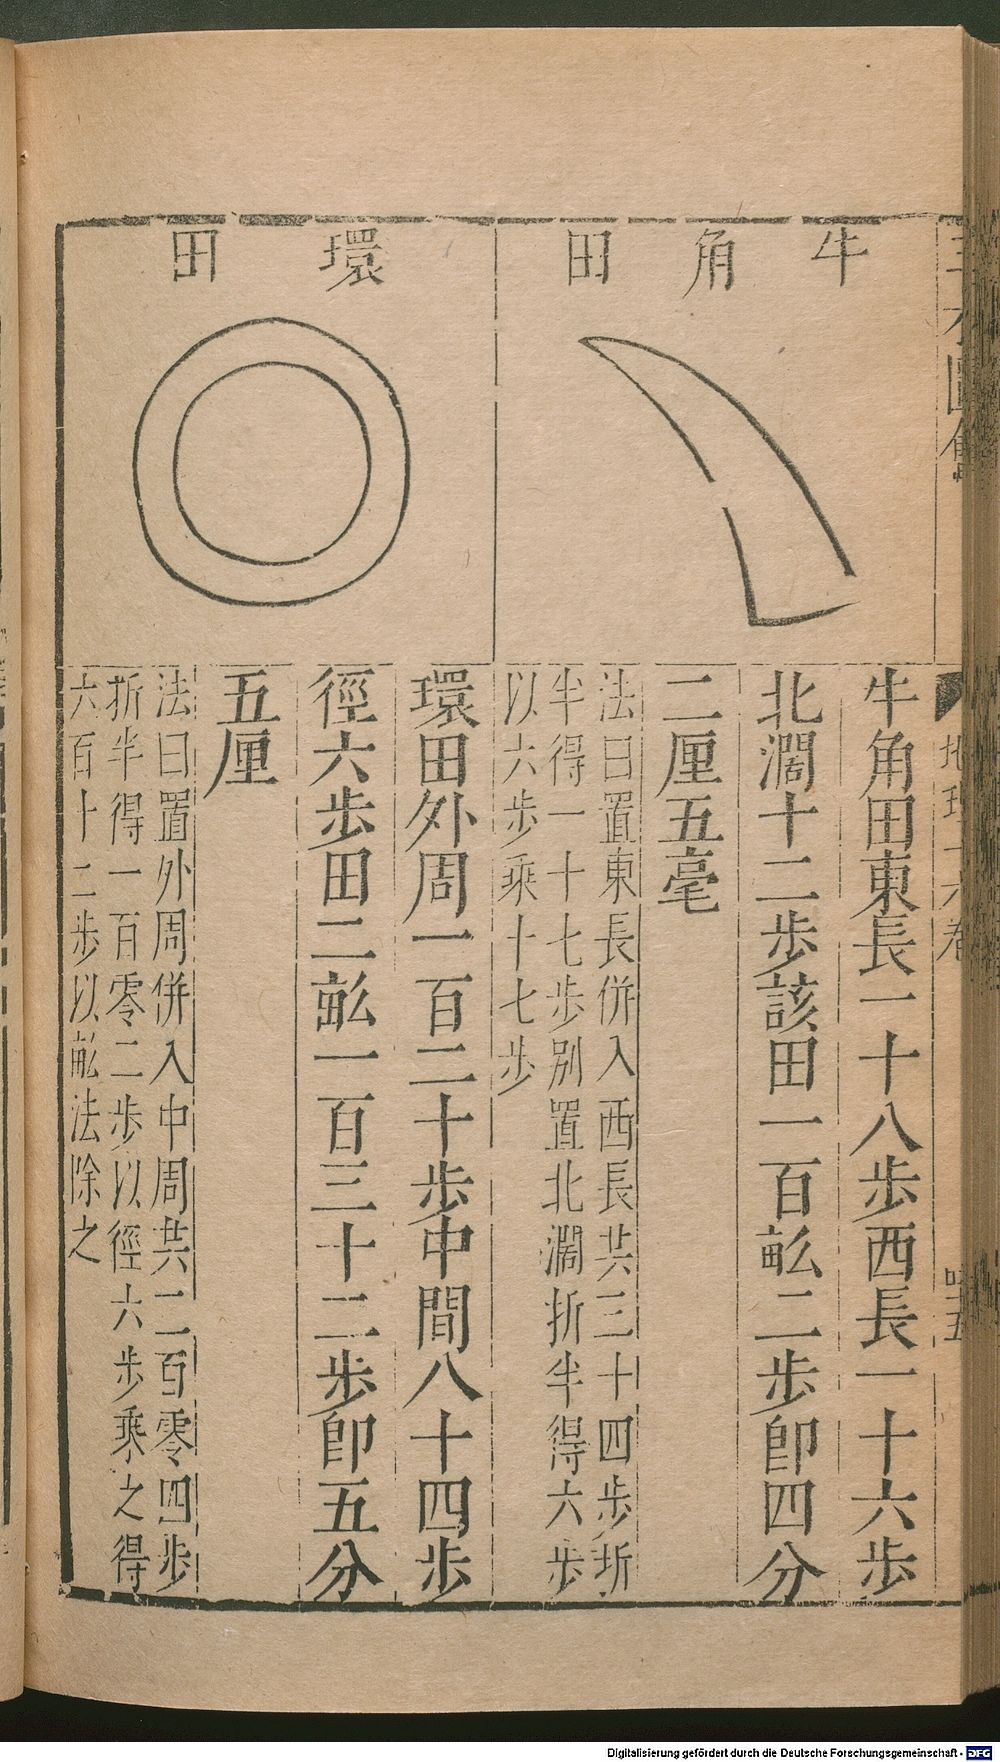 牛角田
牛角田東長一十八步西長一十六步
北濶十二步該田一百畆二步卽四分
二厘五毫
法曰置東長併入西長共三十四步折
半得一十七步別置北濶折半得六步
以六步乘十七步
環田
環田外周一百二十步中間八十四步
徑六步田二畆一百三十二步卽五分
五厘
法曰置外周併入中周共二百零四步
折半得一百零二步以徑六步乘之得
六百十二步以畆法除之
Digitalisierung gefördert durch die Deutsche Forschungsgemeinschaft - DFG